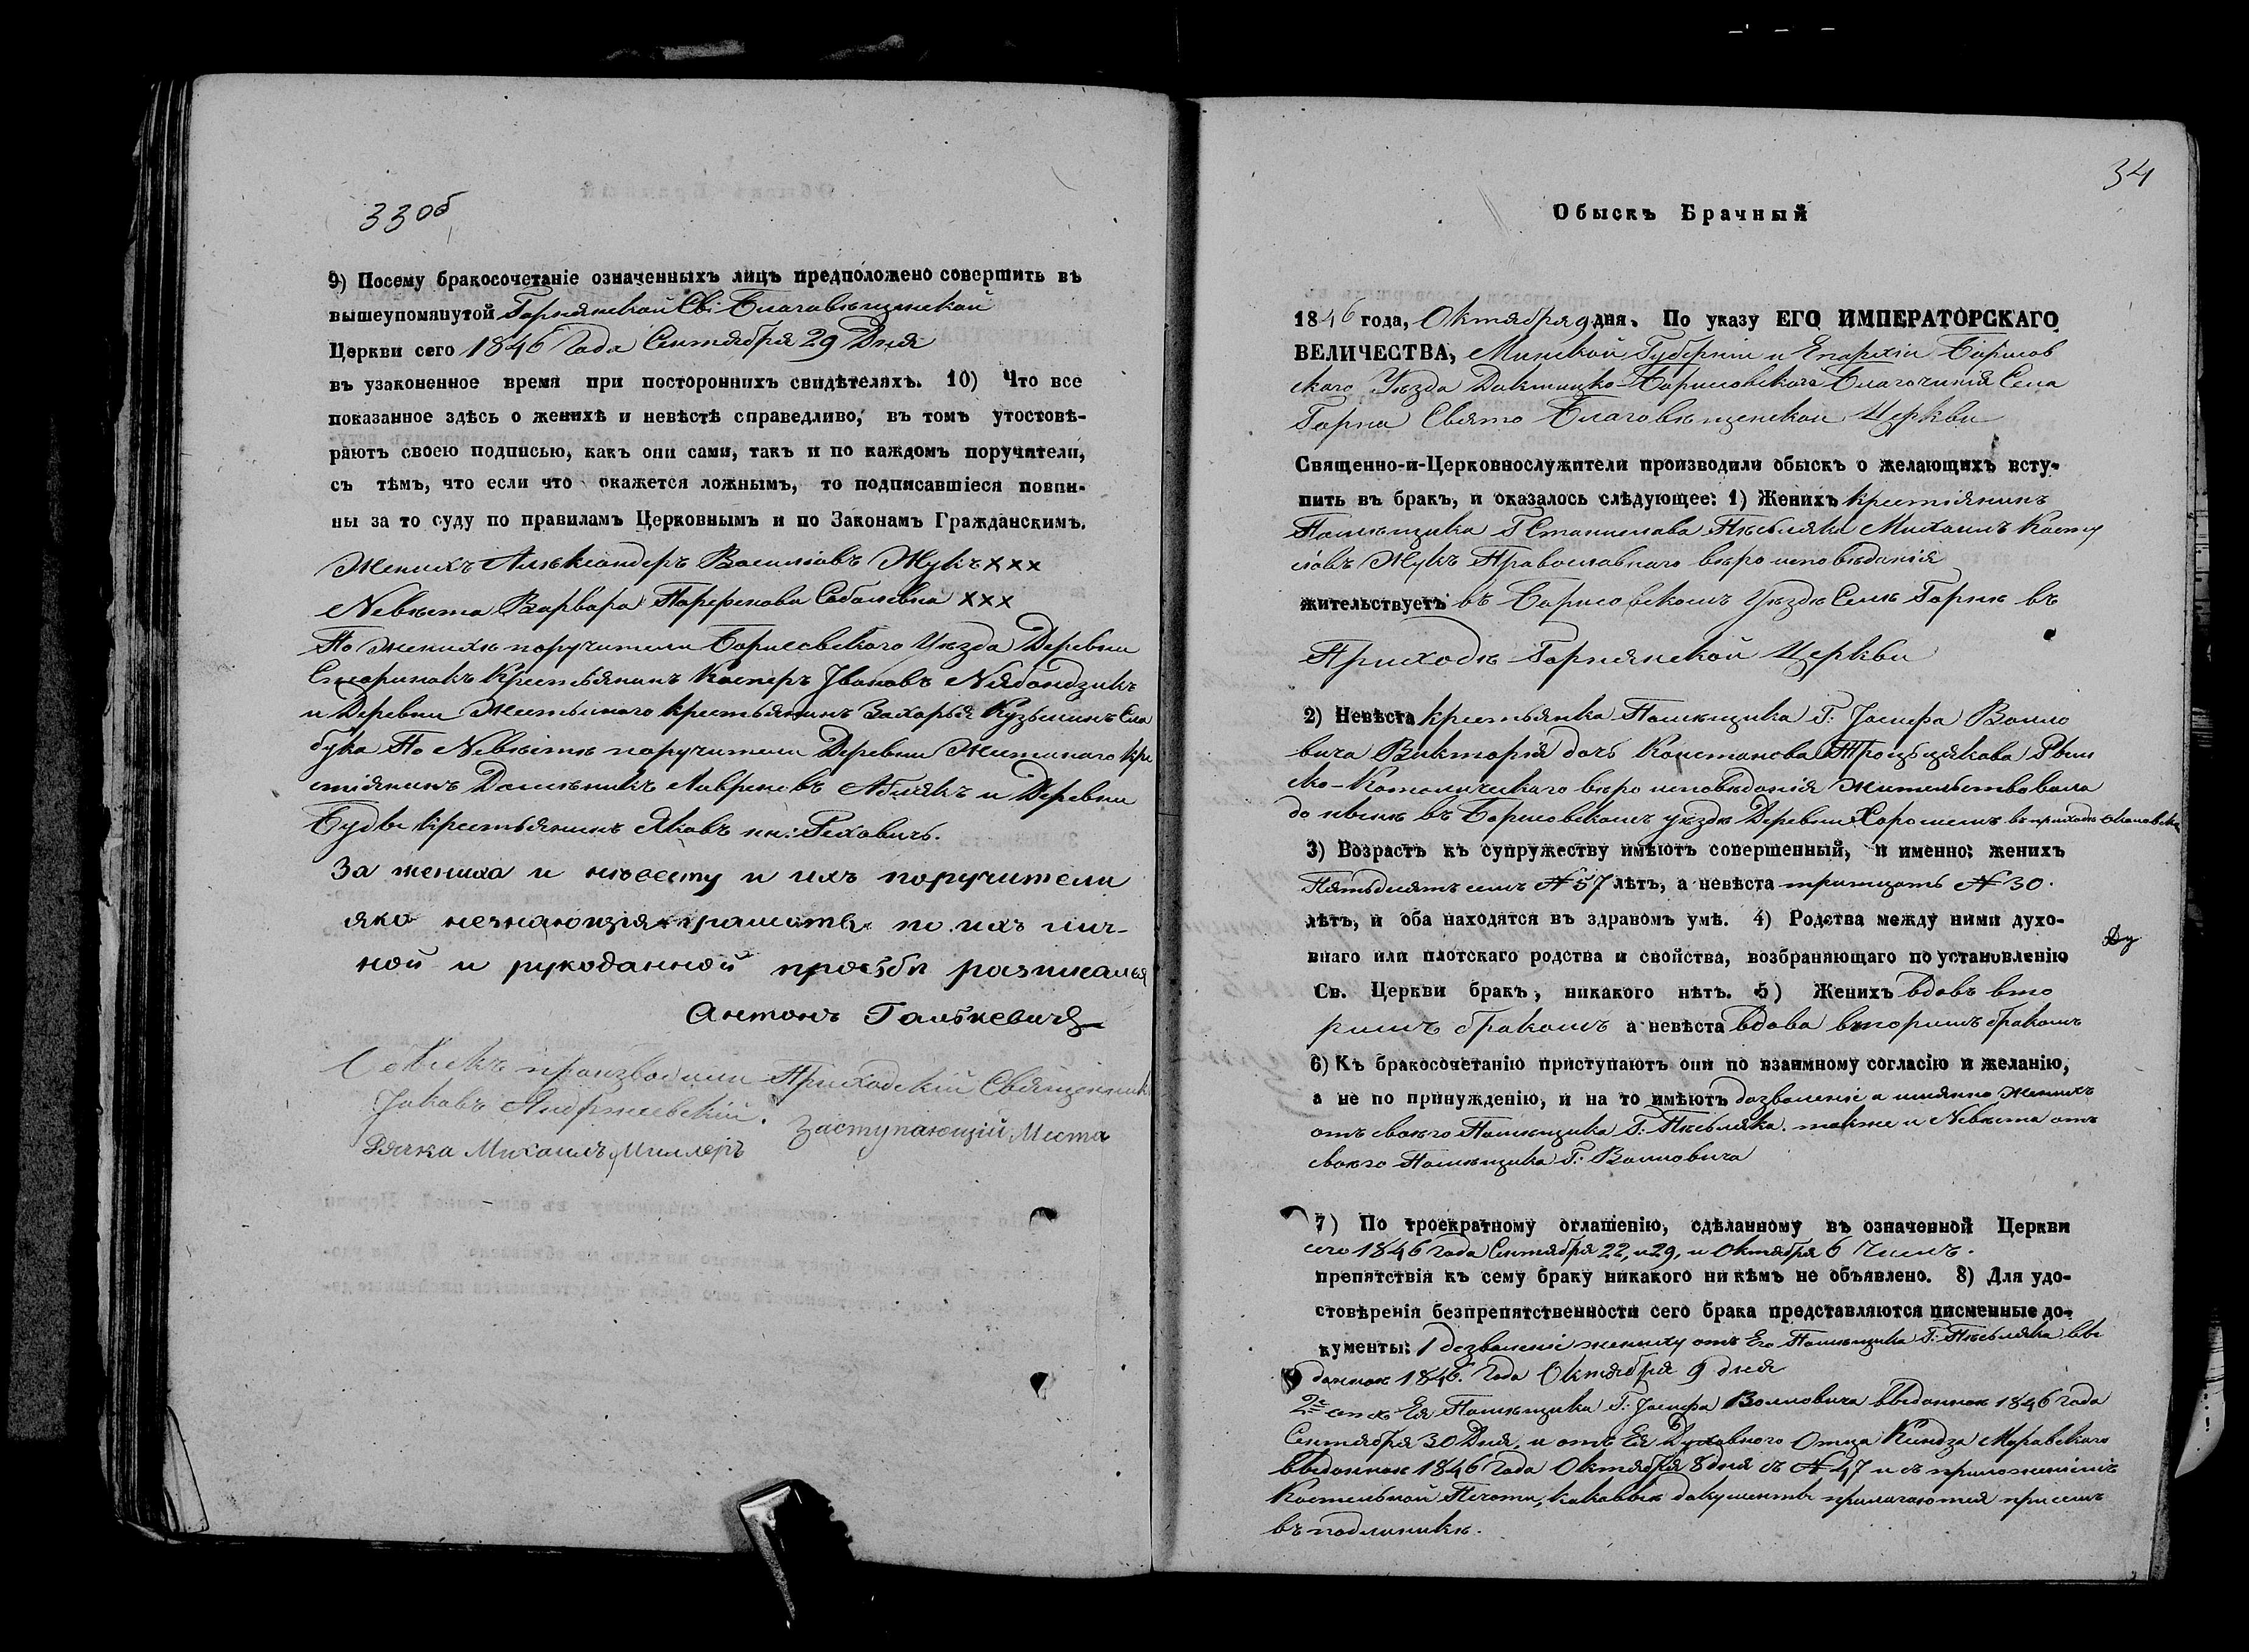 33 об
9) Посему бракосочетаніе означенныхъ лицъ предположено совершить въ
вышеупомянутой Горнянской Св: Благавѣщенской
Церкви сего 1846 Года Сентября 29 Дня
въ узаконенное время при постороннихъ свидѣтеляхъ. 10) Что все
показанное здѣсь о женихѣ и невѣстѣ справедливо, въ томъ утостовѣ-
ряютъ своею подписью, какъ они сами, такъ и по каждомъ поручители,
съ тѣмъ, что если что окажется ложнымъ, то подписавшіеся повин-
ны за то суду по правиламъ Церковнымъ и по Законамъ Гражданскимъ.
Женихъ Алѣксандеръ Васильовъ Жукъ ххх
Невѣста Варвара Парфенова ххх
По женихѣ поручители Борисовского Уѣзда Деревни
Крестьянинъ Касперъ Івановъ
и Деревни крестьянинъ Захарья Кузьминъ Сла
бука По Невѣстѣ поручители Деревни кре
стіянинъ и Деревни
Буды крестьянинъ Яковъ
За жениха и нѣвесту и ихъ поручители
яко незнающія грамоты по ихъ лич-
ной и рукоданной прозбы розписался
Антонъ Галькевичъ
Обыскъ производили Приходскій Священникъ
Іаковъ Андржеевскій. Заступающій Места
Дячка Михаилъ Миллеръ
34
Обыскъ Брачный
1846 года, Октября 9 дня. По указу ЕГО ИМПЕРАТОРСКАГО
ВЕЛИЧЕСТВА, Минской Губерніи и Епархіи Борисов
ского Уѣзда Докшицко-Борисовского Благочинія Села
Горна Свято Благовѣщенской Церкви
Священно-и-Церковнослужители производили обыскъ о желающихъ всту-
пить въ бракъ, и оказалось слѣдующее: 1) Женихъ крестіянинъ
Помѣщика Г Станислава Михаилъ
Жукъ Православнаго вѣро исповѣданія
жительствуетъ въ Борисовскомъ Уѣздѣ Селѣ Горнѣ въ
Приходѣ Горнянской Церкви
2) Невѣста крестьянка Помѣщика Г: Іосифа Волло
вича Викторія дочь Рым
ско-Католическаго вѣро исповѣданія жительствовала
до нынѣ въ Борисовскомъ уѣздѣ Деревни въ приходѣ
3) Возрастъ къ супружеству имѣютъ совершенный, и именно: женихъ
№ 57 лѣтъ, а невѣста тритцать № 30.
лѣтъ, и оба находятся въ здравомъ умѣ. 4) Родства между ними духо-
Ду
внаго или плотскаго родства и свойства, возбраняющаго по установленію
Св. Церкви бракъ, никакого нѣтъ. 5) Женихъ вдовъ вто
римъ бракомъ а невѣста вдова вторимъ бракомъ
6) Къ бракосочетанію приступаютъ они по взаимному согласію и желанію,
а не по принужденію, и на то имѣютъ дозволеніе а имянно Женихъ
отъ своего Помѣщика Г: также и Невѣста отъ
своего Помѣщика Г: Волловича
7) По троекратному оглашенію, сдѣланному въ означенной Церкви
сего 1846 года Сентября 22, и 29, и Октября 6 Числъ.
препятствія къ сему браку никакого ни кѣмъ не объявлено. 8) Для удо-
стовѣренія безпрепятственности сего брака представляются писменные до-
кументы: 1 дозволеніе жениху отъ Его Помѣщика Г: вы
данное 1846. Года Октября 9 дня
2е Ея Помѣщика Г: Іосифа Волловича выданное 1846 года
Сентября 30 Дня, и отъ Ея Духовного Отца Кендза Муравского
выданное 1846 Года Октября 8 дня съ № 47 и съ приложеніемъ
Костельной Печати, каковые документы прилагаются при семъ
въ подлиникѣ.